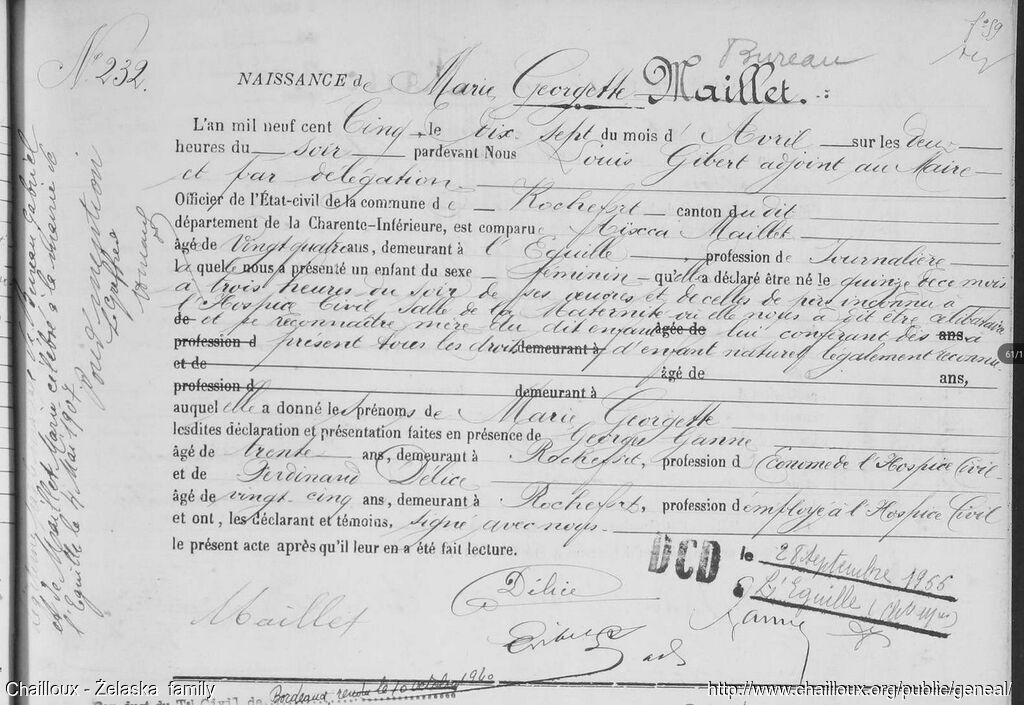 Nº 232.
fº 59
Bureau
NAISSANCE de Marie Georgette Maillet.
L'an mil neuf cent Cinq, le dix sept du mois d'Avril sur les deux
heures du soir pardevant Nous Louis Gibert adjoint au Maire
et par délégation
Officier de l'État-civil de la commune de Rochefort canton du dit
département de la Charente-Inférieure, est comparue Maillet
âgé de vingt quatre ans, demeurant à l'Eguille, profession de Journalière
laquelle nous a présenté un enfant du sexe féminin qu'elle a déclaré être né le quinze de ce mois
à trois heures du soir de ses œuvres et de celles de père inconnu à
l'Hospice Civil salle de la Maternité où elle nous a dit être célibataire
de et se reconnaître mère du dit enfant âgée de lui conférant dès ans, à
profession d présent tous les droits demeurant à d'enfant naturel légalement reconnu
et de âgé de ans,
profession d demeurant à
auquel elle a donné les prénoms de Marie Georgette
lesdites déclaration et présentation faites en présence de Georges Ganne
âgé de trente ans, demeurant à Rochefort, profession d Econome de l'Hospice Civil
et de Ferdinand Délice
âgé de vingt-cinq ans, demeurant à Rochefort, profession d'employé à l'Hospice Civil
et ont, les déclarant et témoins, signé avec nous
le présent acte après qu'il leur en a été fait lecture.
DCD le 28 septembre 1966
à L'Eguille
Délice
Maillet
Ganne
et de Maillet Marie célébré à la mairie de
l'Eguille le 4 Mai 1907
Bordeaux rendu le 10 octobre 1960
Chailloux - Želaska family
http://www.chailloux.org/public/geneal/
61/1